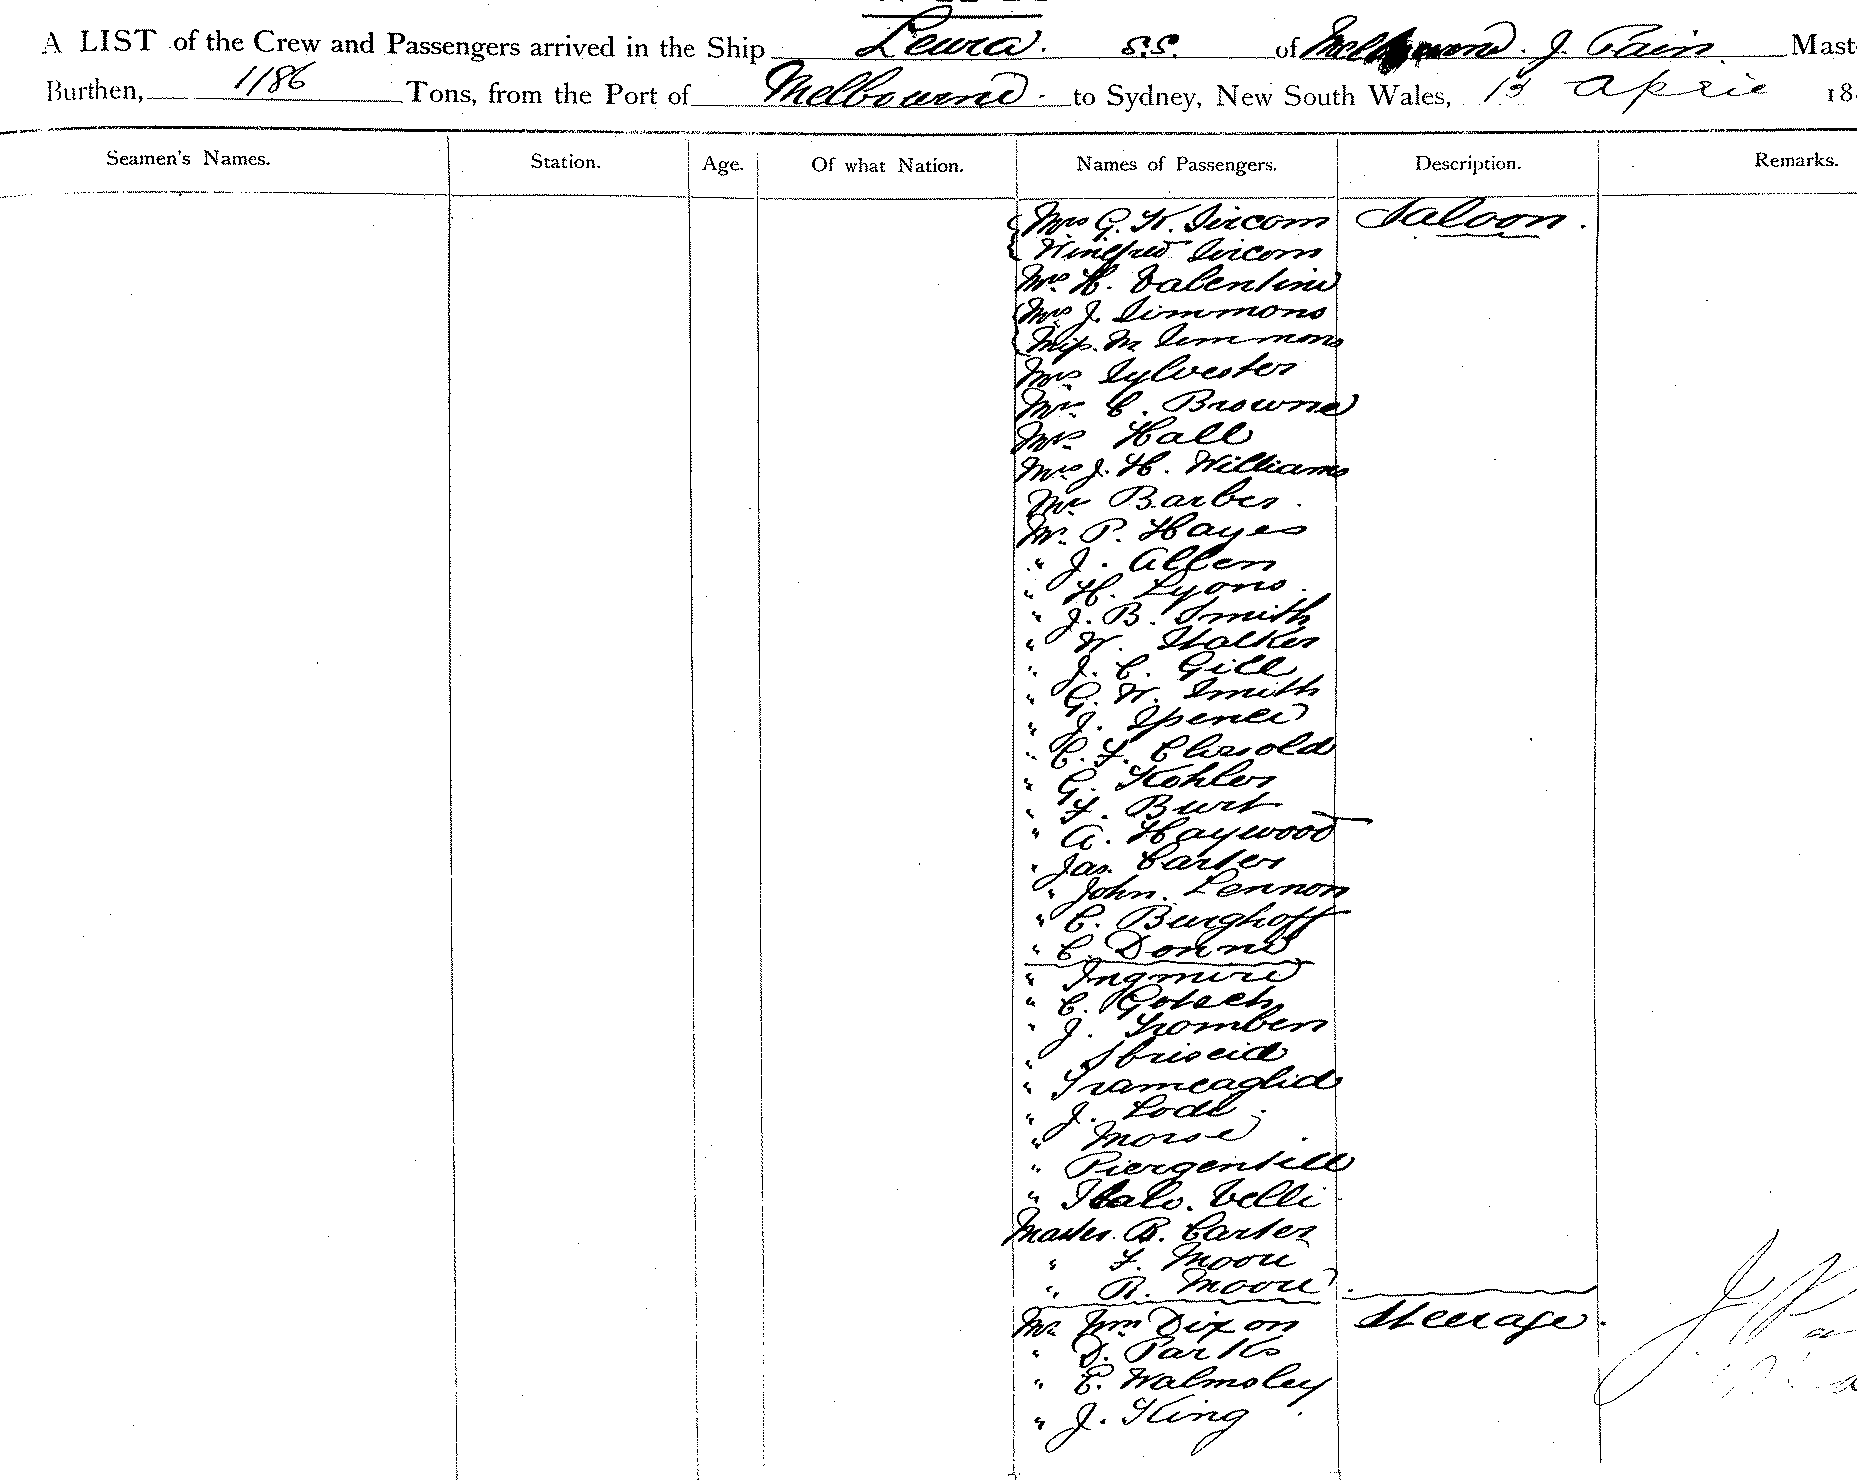 A LIST of the Crew and Passengers arrived in the Ship Leura. S.S. of Melbourne. J. Pain Mast
Burthen, 1186 Tons, from the Port of Melbourne. to Sydney, New South Wales, 13 April 18
Seamen's Names. Station. Age. Of what Nation. Names of Passengers. Description. Remarks.
Mrs G. K. Sircom Saloon.
Winifred Sircom
Mr. H. Valentine
Mrs J. Simmons
Miss. M Simmons
Mrs Sylvester
Mr. C. Browne
Mrs Hall
Mrs J. H. Williams
Mr Barber.
Mr. P. Hayes
" J. Allen
" H. Lyons.
" J. B. Smith
" W. Stalker
" J. C. Gill
" G. W. Smith
" J. Spence
" C. F. Clissold
" G. Kohler
" F. Burt
" A. Haywood
" Jas. Carter
" John. Lennon
" C. Burghoff
" C. Donne
" Ingmire
" C. Gotsch
" J. Tromben
"
"
" J. Lodi
" Morse
" Piergentill
" Italo. Velli
Master. R. Carter
" F. Moore
" R. Moore.
Mr. Wm Dixon Steerage.
" D. Parks
" C. Walmsley
" J. King